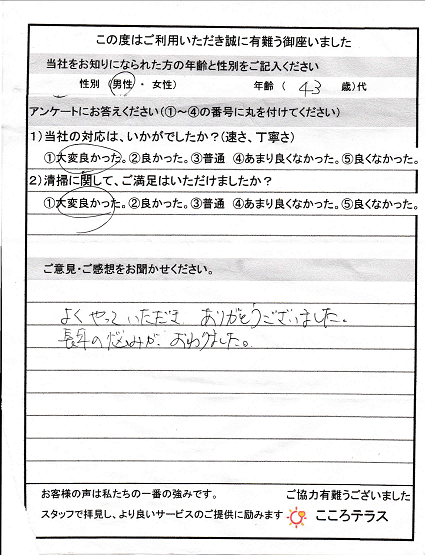 この度はご利用いただき誠に有難う御座いました
当社をお知りになられた方の年齢と性別をご記入ください
性別 (男性 ・ 女性) 年齢 ( 43 歳)代
アンケートにお答えください(①～④の番号に丸を付けてください)
1)当社の対応は、いかがでしたか?(速さ、丁寧さ)
①大変良かった。②良かった。③普通 ④あまり良くなかった。⑤良くなかった。
2)清掃に関して、ご満足はいただけましたか?
①大変良かった。②良かった。③普通 ④あまり良くなかった。⑤良くなかった。
ご意見・ご感想をお聞かせください。
よくやっていただき ありがとうございました。
長年の悩みが、おわりました。
お客様の声は私たちの一番の強みです。 ご協力有難うございました
スタッフで拝見し、より良いサービスのご提供に励みます こころテラス